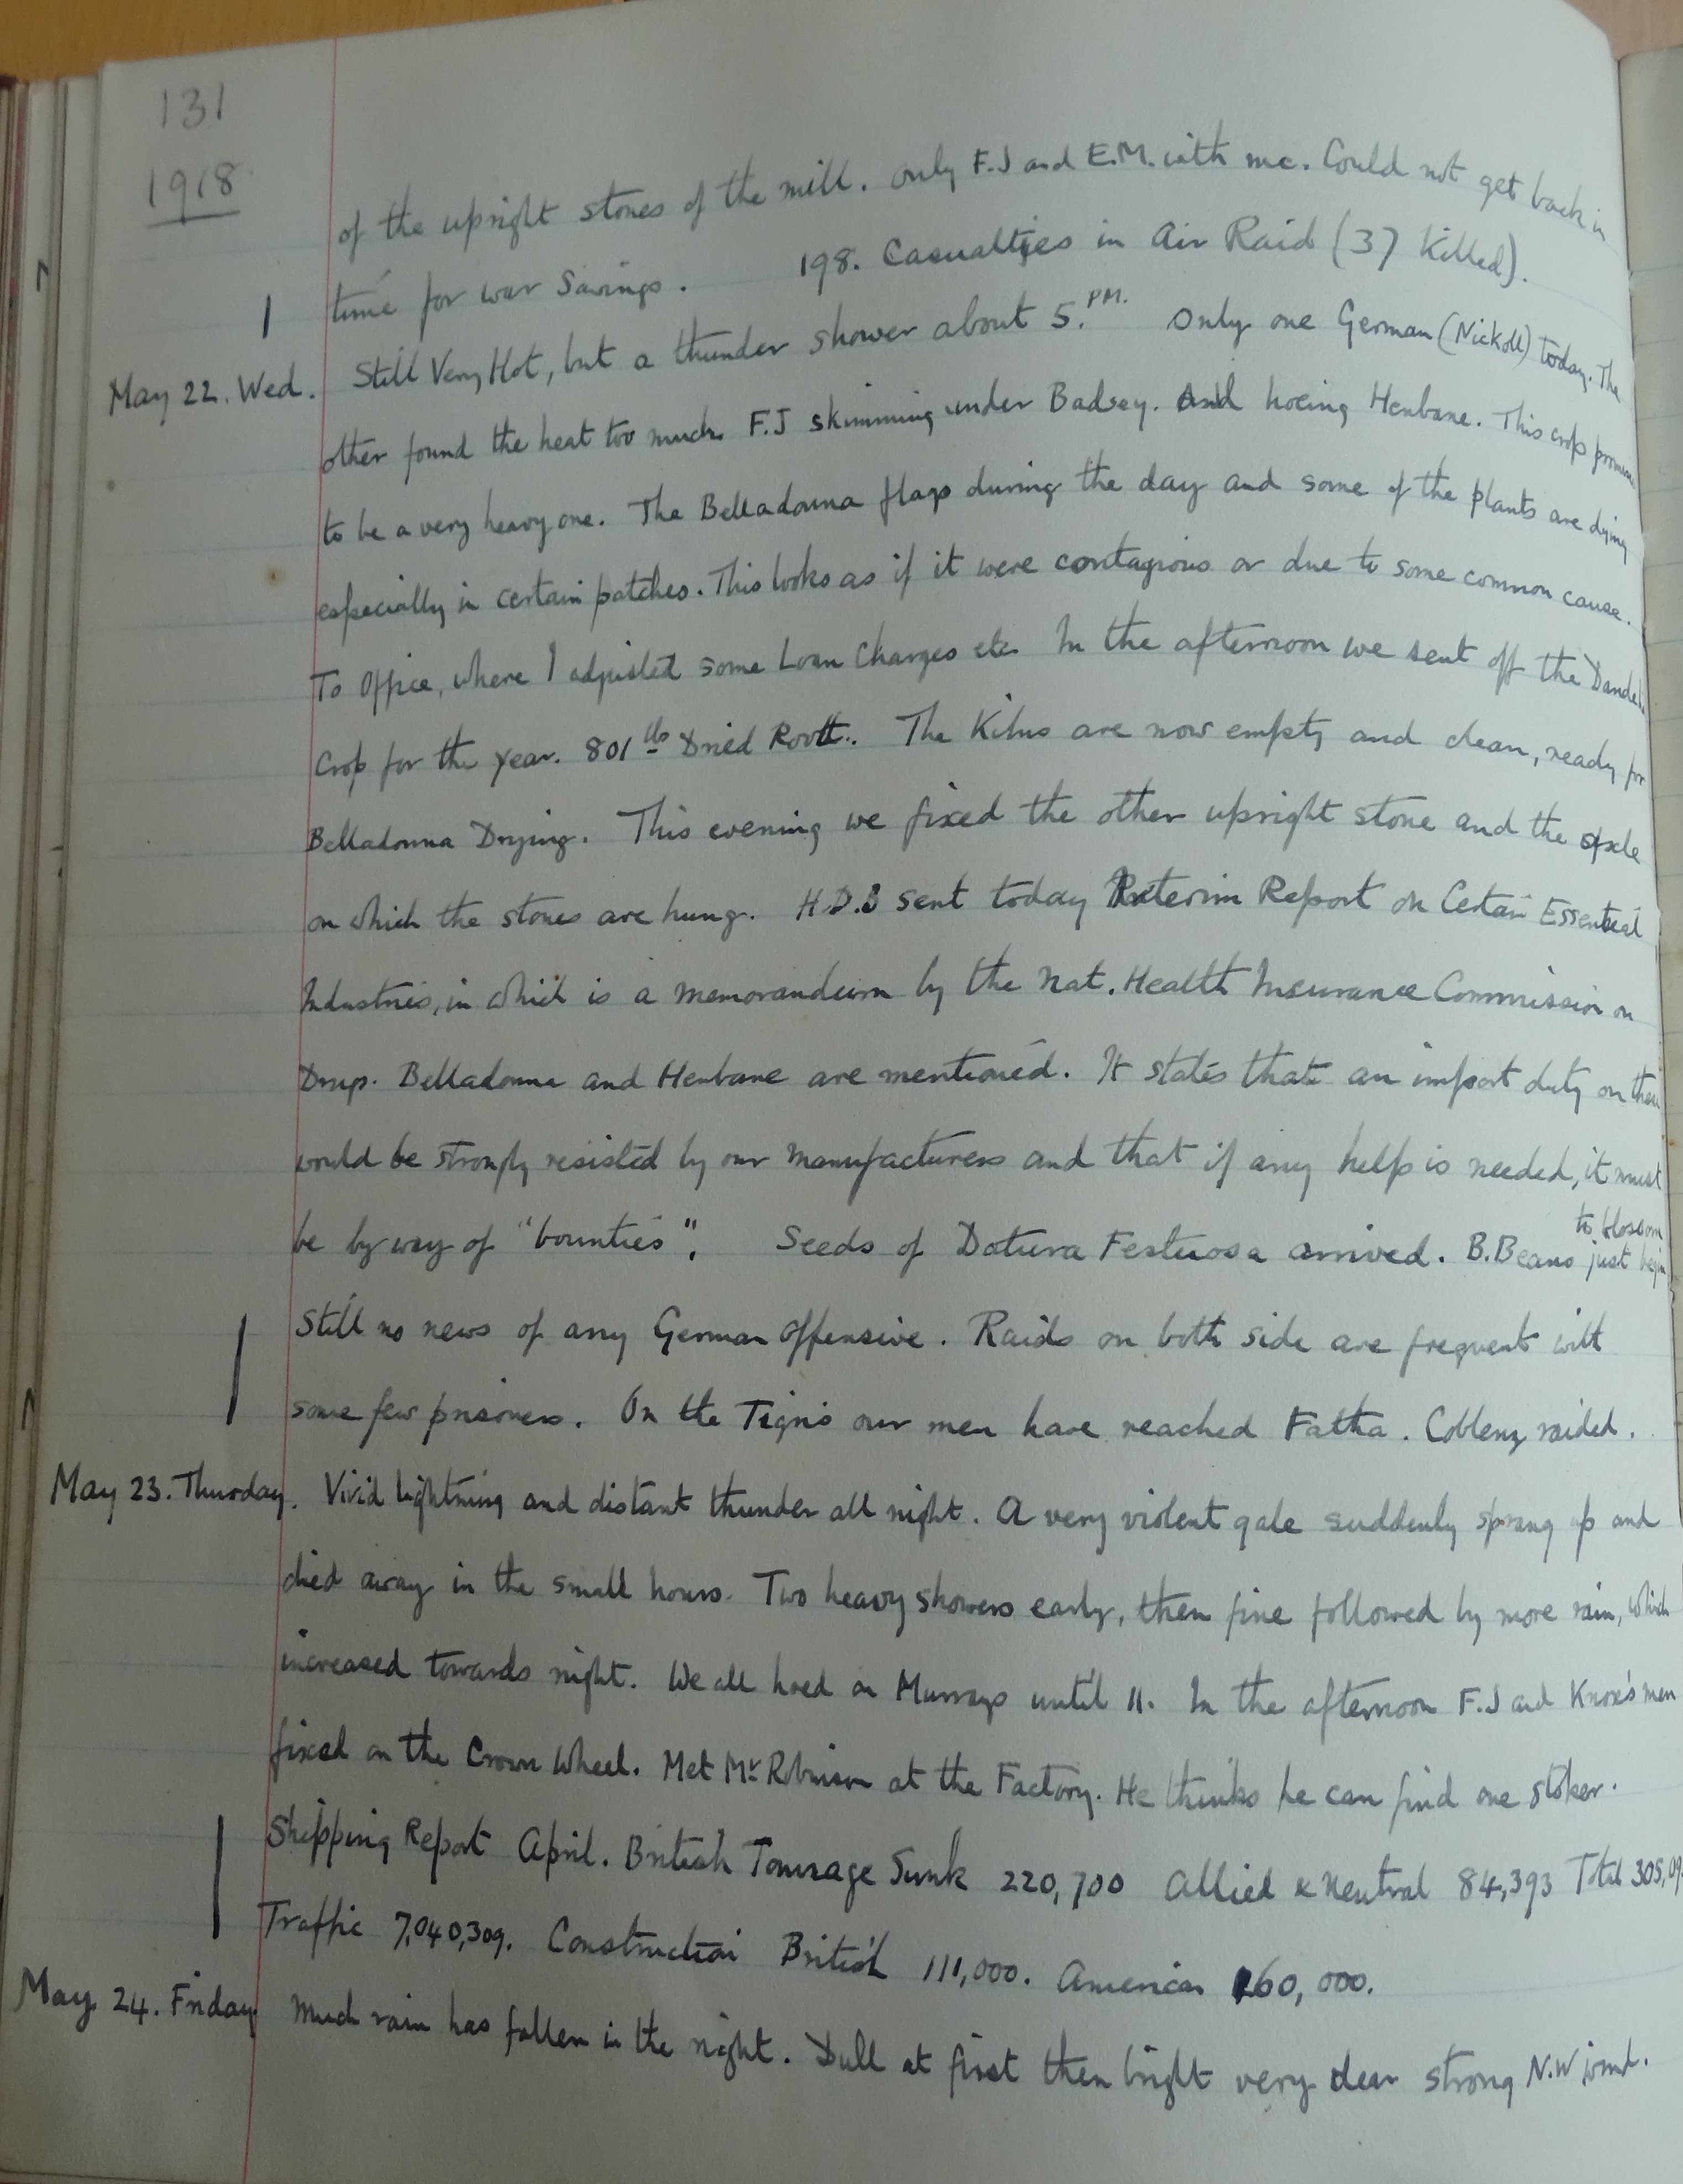 131
1918
of the upright stones of the mill. only F.J and E.M. with me. Could not get back in
time for war Savings. 198. Casualties in Air Raid (37 Killed).
May 22. Wed. Still Very Hot, but a thunder shower about 5.PM. Only one German (Nickoll) today. The
other found the heat too much. F.J skimming under Badsey. And hoeing Henbane. This crop promises
to be a very heavy one. The Belladonna flags during the day and some of the plants are dying
especially in certain patches. This looks as if it were contagious or due to some common cause.
To Office, where I adjusted some Loan Charges etc. In the afternoon we sent off the
Crop for the year. 801 lbs Dried Root. The Kilns are now empty and clean, ready for
Belladonna Drying. This evening we fixed the other upright stone and the axle
on which the stones are hung. H.D.B sent today Interim Report on Certain Essential
Industries, in which is a memorandum by the Nat. Health Insurance Commission on
Drugs. Belladonna and Henbane are mentioned. It states that an import duty on them
would be strongly resisted by our manufacturers and that if any help is needed, it must
be by way of "bounties". Seeds of Datura Festuosa arrived. B. Beans just begin to blossom
Still no news of any German Offensive. Raids on both side are frequent with
some few prisoners. On the Tigris our men have reached Fatha. Coblenz raided.
May 23. Thursday. Vivid lightning and distant thunder all night. A very violent gale suddenly sprang up and
died away in the small hours. Two heavy showers early, then fine followed by more rain, which
increased towards night. We all hoed on Murrays until 11. In the afternoon F.J and Knox's men
fixed on the Crown Wheel. Met Mr Robinson at the Factory. He thinks he can find one stoker.
Shipping Report April. British Tonnage Sunk 220,700 Allied & Neutral 84,393 Total 305,09
Traffic 7,040,309. Construction British 111,000. American 160,000.
May 24. Friday Much rain has fallen in the night. Dull at first then bright very clear strong N.W wind.